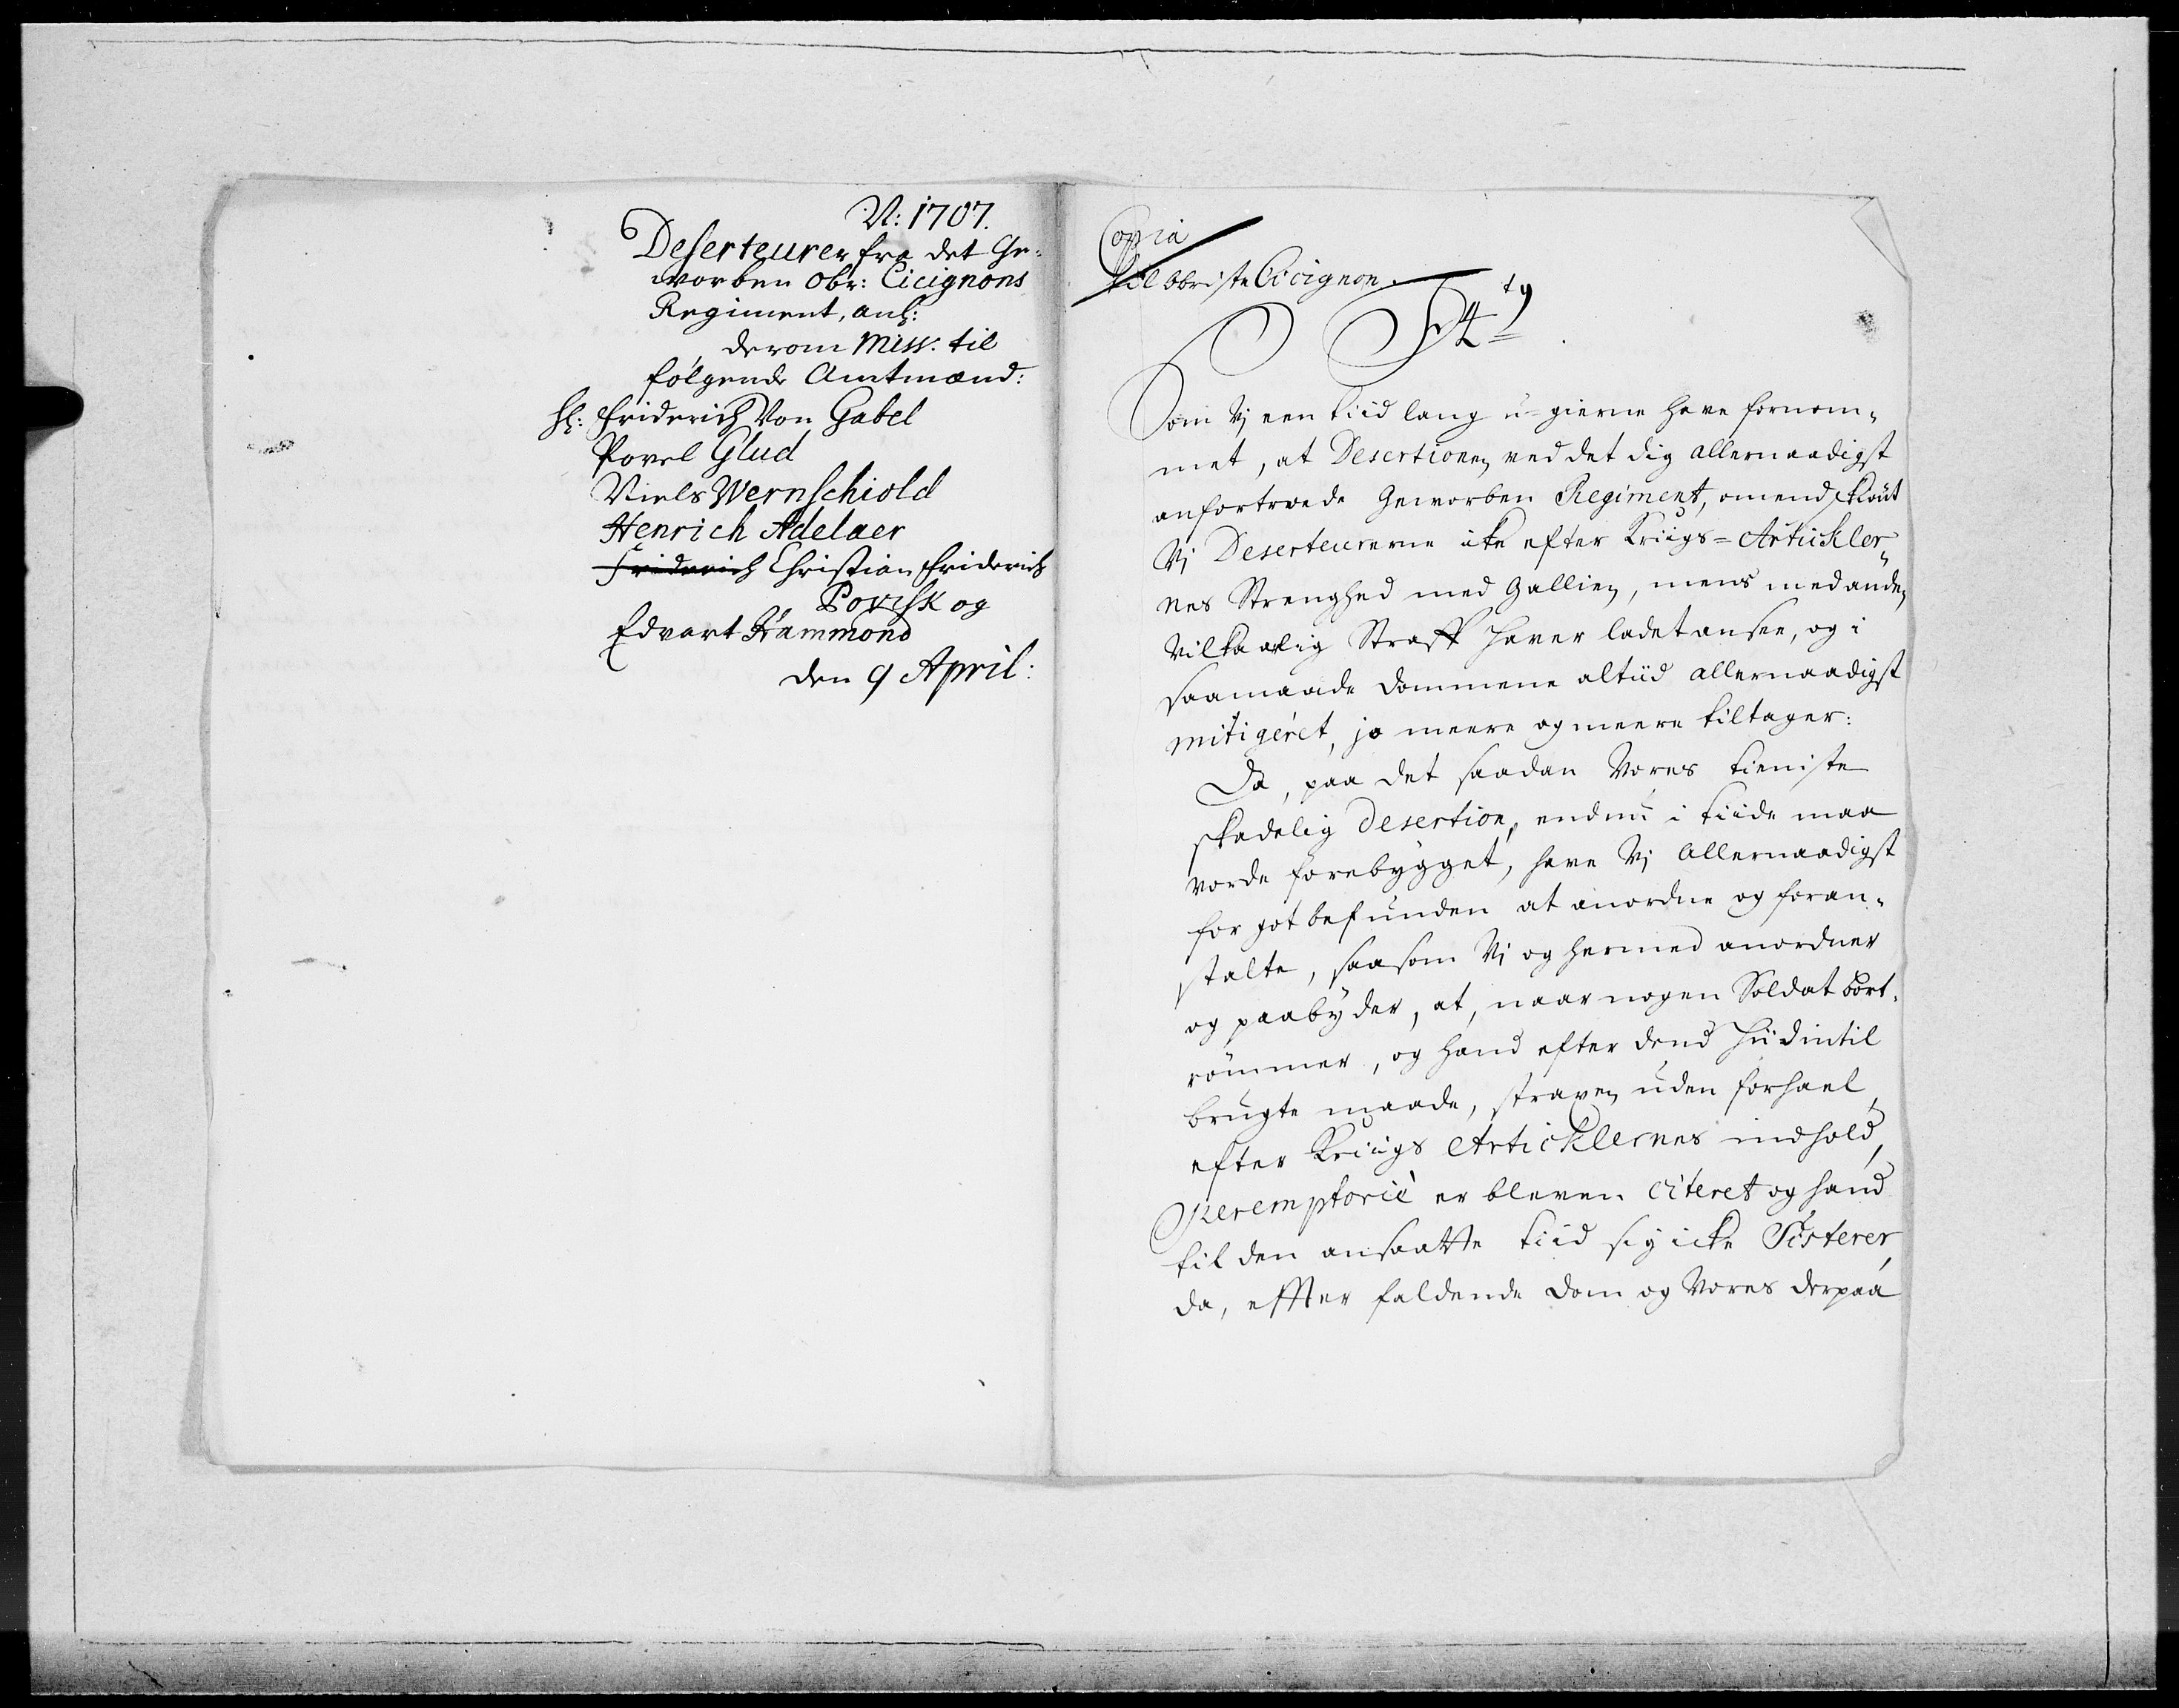 N: 1707.
Deserteurer fra det Ge-
worben Obr: Cicignons
Regiment, anl:
derom Miss: til
følgende Amtmænd:
Hl: Friderich Von Gabel
Povel Glud
Niels Wernschiold
Henrich Adelaer
Friderich Christian Friderich
Povisk og
Edvart Hammond
den 9 April:
Copia
til Obriste Cicignon.
F 4 tg
Som Vj een tiid lang u-gierne have fornom-
met, at Desertionen ved det dig allernaadigst
anfortroede Geworben Regiment, omendskiøut
Vj Deserteurerne icke efter Kriigs-Artickler-
nes Strenghed med Gallien, mens med anden
vilkaarlig Straff haver ladet ansee, og i
saamaade dommene altiid allernaadigst
mitigeret, jo meere og meere tiltager:
Da, paa det saadan Vores tieniste
skadelig Desertion, endnu i tiide maa
vorde forebygget, have Vj Allernaadigst
for got befunden at anordne og foran-
stalte, saasom Vj og hermed anordner
og paabyder, at, naar nogen Soldat bort-
römmer, og hand efter dend hiidintil
brugte maade, straxen uden forhael,
efter Kriigs Articklernes indhold,
Peremptorie er bleven Citeret og hand
til den ansatte tiid sig icke Sisterer,
da, effter faldende dom og Vores derpaa